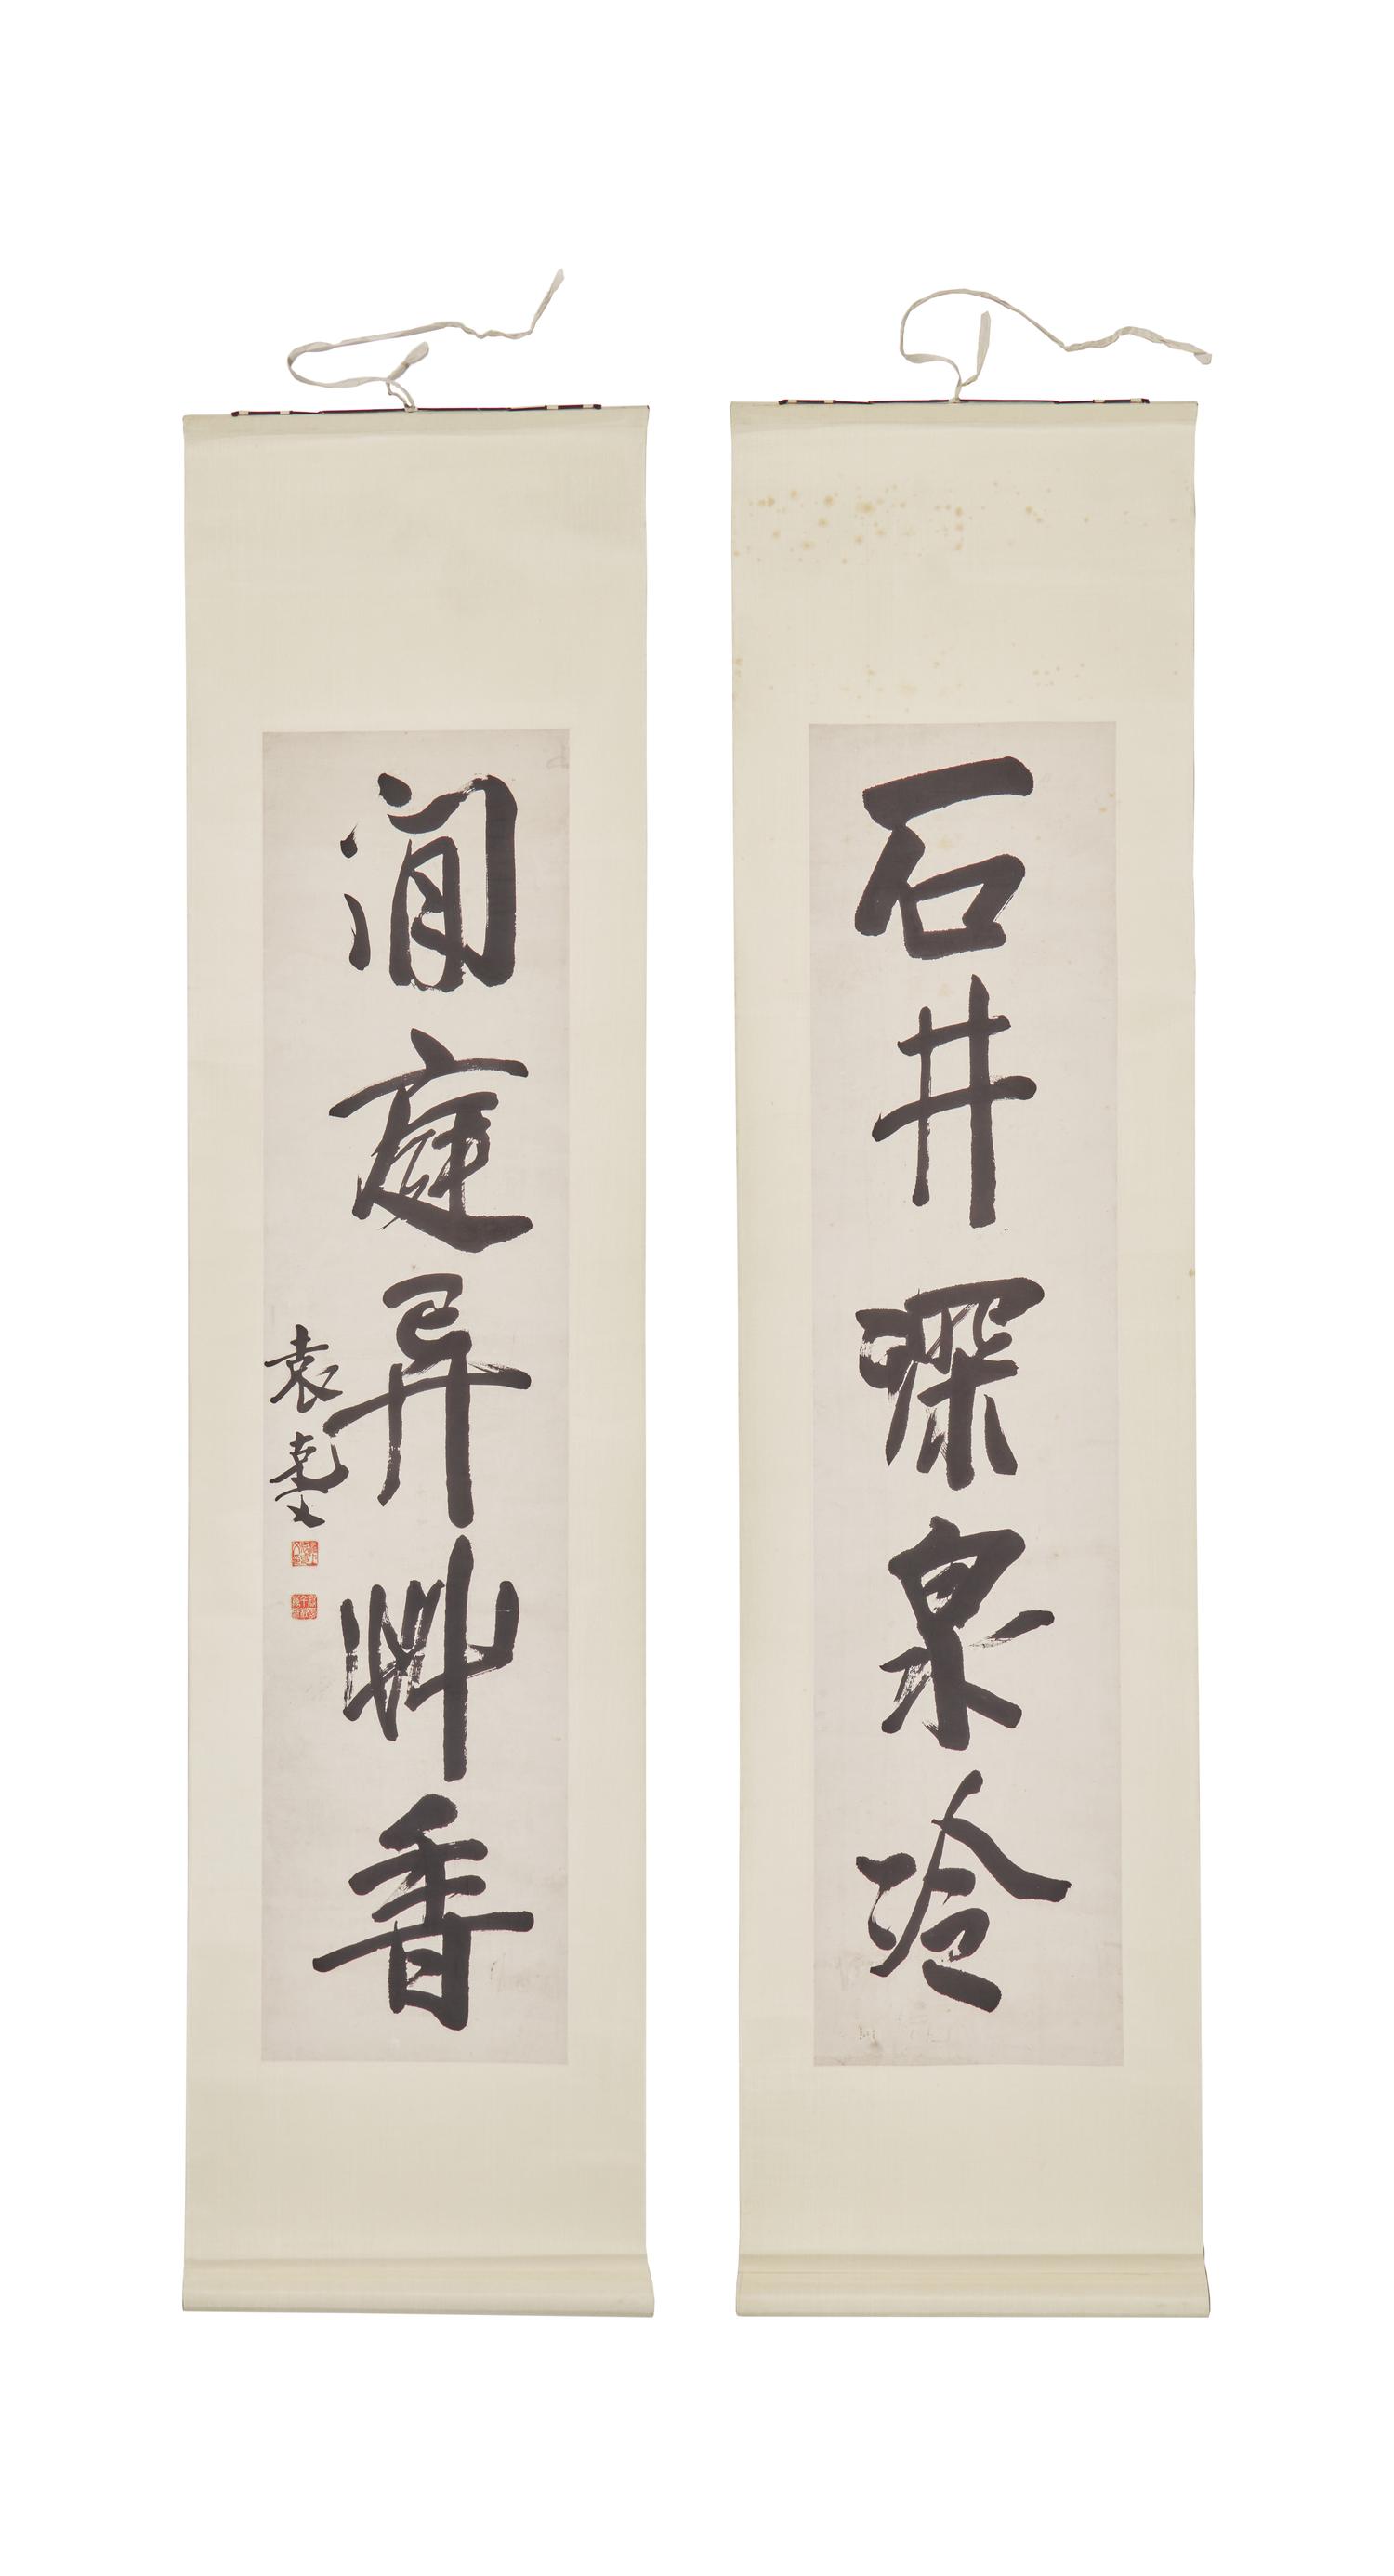 石井深泉冷
閒庭異艸香
袁克文